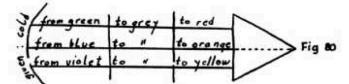 given: cold
from green to grey to red
from blue to " to orange
from violet to " to yellow
Fig 80